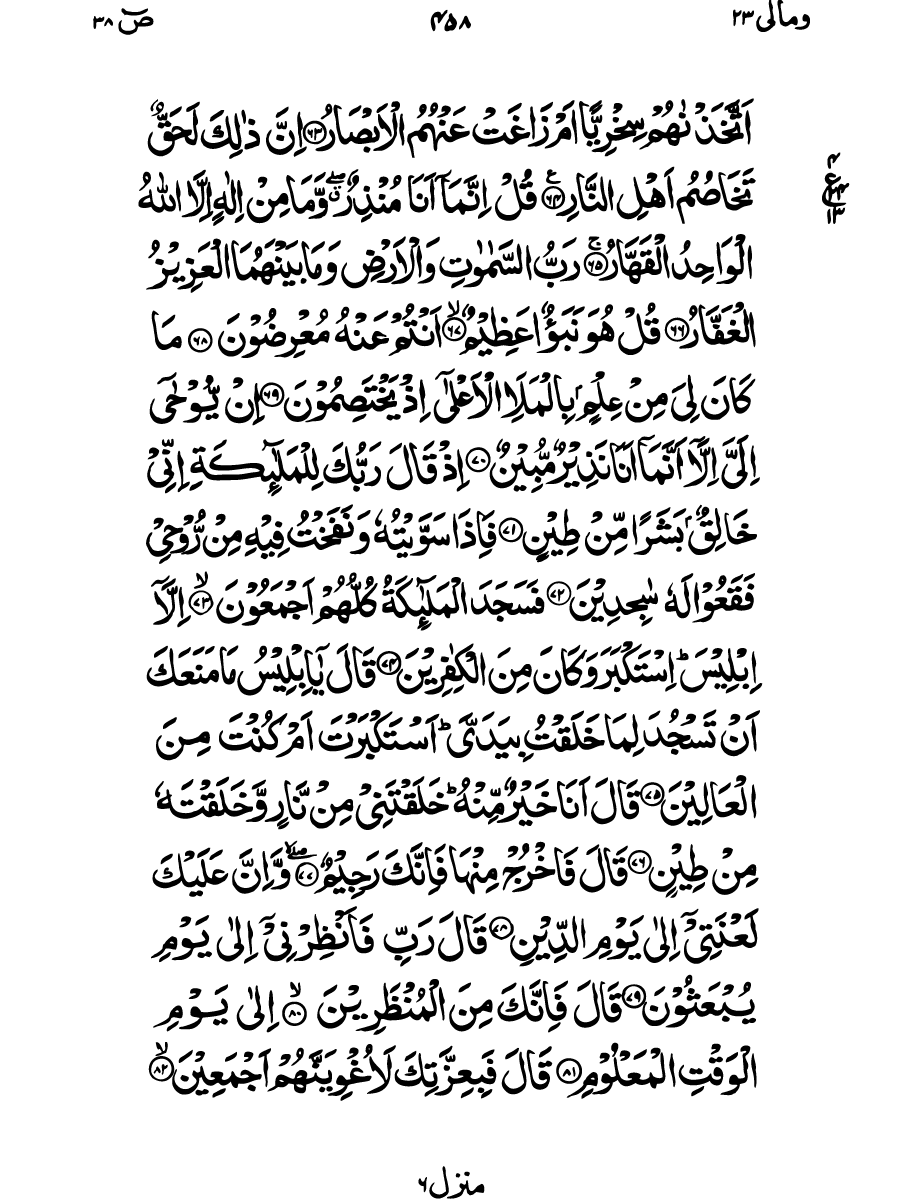 ومالی ۲۳ ۴۵۸ صٓ ۳۸
اَتَّخَذْنٰهُمْ سِخْرِيًّا اَمْ زَاغَتْ عَنْهُمُ الْاَبْصَارُ ﴿۶۳﴾ اِنَّ ذٰلِكَ لَحَقٌّ
تَخَاصُمُ اَهْلِ النَّارِ ﴿۶۴﴾ قُلْ اِنَّمَاۤ اَنَا مُنْذِرٌ ۖۗ وَّمَا مِنْ اِلٰهٍ اِلَّا اللّٰهُ
الْوَاحِدُ الْقَهَّارُ ﴿۶۵﴾ رَبُّ السَّمٰوٰتِ وَالْاَرْضِ وَمَا بَيْنَهُمَا الْعَزِيْزُ
الْغَفَّارُ ﴿۶۶﴾ قُلْ هُوَ نَبَؤٌا عَظِيْمٌ ﴿۶۷﴾ اَنْتُمْ عَنْهُ مُعْرِضُوْنَ ﴿۶۸﴾ مَا
كَانَ لِيَ مِنْ عِلْمٍ ۭ بِالْمَلَاِ الْاَعْلٰٓى اِذْ يَخْتَصِمُوْنَ ﴿۶۹﴾ اِنْ يُّوْحٰۤى
اِلَيَّ اِلَّاۤ اَنَّمَاۤ اَنَا نَذِيْرٌ مُّبِيْنٌ ﴿۷۰﴾ اِذْ قَالَ رَبُّكَ لِلْمَلٰٓئِكَةِ اِنِّيْ
خَالِقٌۢ بَشَرًا مِّنْ طِيْنٍ ﴿۷۱﴾ فَاِذَا سَوَّيْتُهٗ وَنَفَخْتُ فِيْهِ مِنْ رُّوْحِيْ
فَقَعُوْا لَهٗ سٰجِدِيْنَ ﴿۷۲﴾ فَسَجَدَ الْمَلٰٓئِكَةُ كُلُّهُمْ اَجْمَعُوْنَ ﴿۷۳﴾ اِلَّاۤ
اِبْلِيْسَ ؕ اِسْتَكْبَرَ وَكَانَ مِنَ الْكٰفِرِيْنَ ﴿۷۴﴾ قَالَ يٰۤاِبْلِيْسُ مَا مَنَعَكَ
اَنْ تَسْجُدَ لِمَا خَلَقْتُ بِيَدَيَّ ؕ اَسْتَكْبَرْتَ اَمْ كُنْتَ مِنَ
الْعَالِيْنَ ﴿۷۵﴾ قَالَ اَنَا خَيْرٌ مِّنْهُ ؕ خَلَقْتَنِيْ مِنْ نَّارٍ وَّخَلَقْتَهٗ
مِنْ طِيْنٍ ﴿۷۶﴾ قَالَ فَاخْرُجْ مِنْهَا فَاِنَّكَ رَجِيْمٌ ﴿۷۷﴾ وَّاِنَّ عَلَيْكَ
لَعْنَتِيْۤ اِلٰى يَوْمِ الدِّيْنِ ﴿۷۸﴾ قَالَ رَبِّ فَاَنْظِرْنِيْۤ اِلٰى يَوْمِ
يُبْعَثُوْنَ ﴿۷۹﴾ قَالَ فَاِنَّكَ مِنَ الْمُنْظَرِيْنَ ﴿۸۰﴾ اِلٰى يَوْمِ
الْوَقْتِ الْمَعْلُوْمِ ﴿۸۱﴾ قَالَ فَبِعِزَّتِكَ لَاُغْوِيَنَّهُمْ اَجْمَعِيْنَ ﴿۸۲﴾
منزل ۶